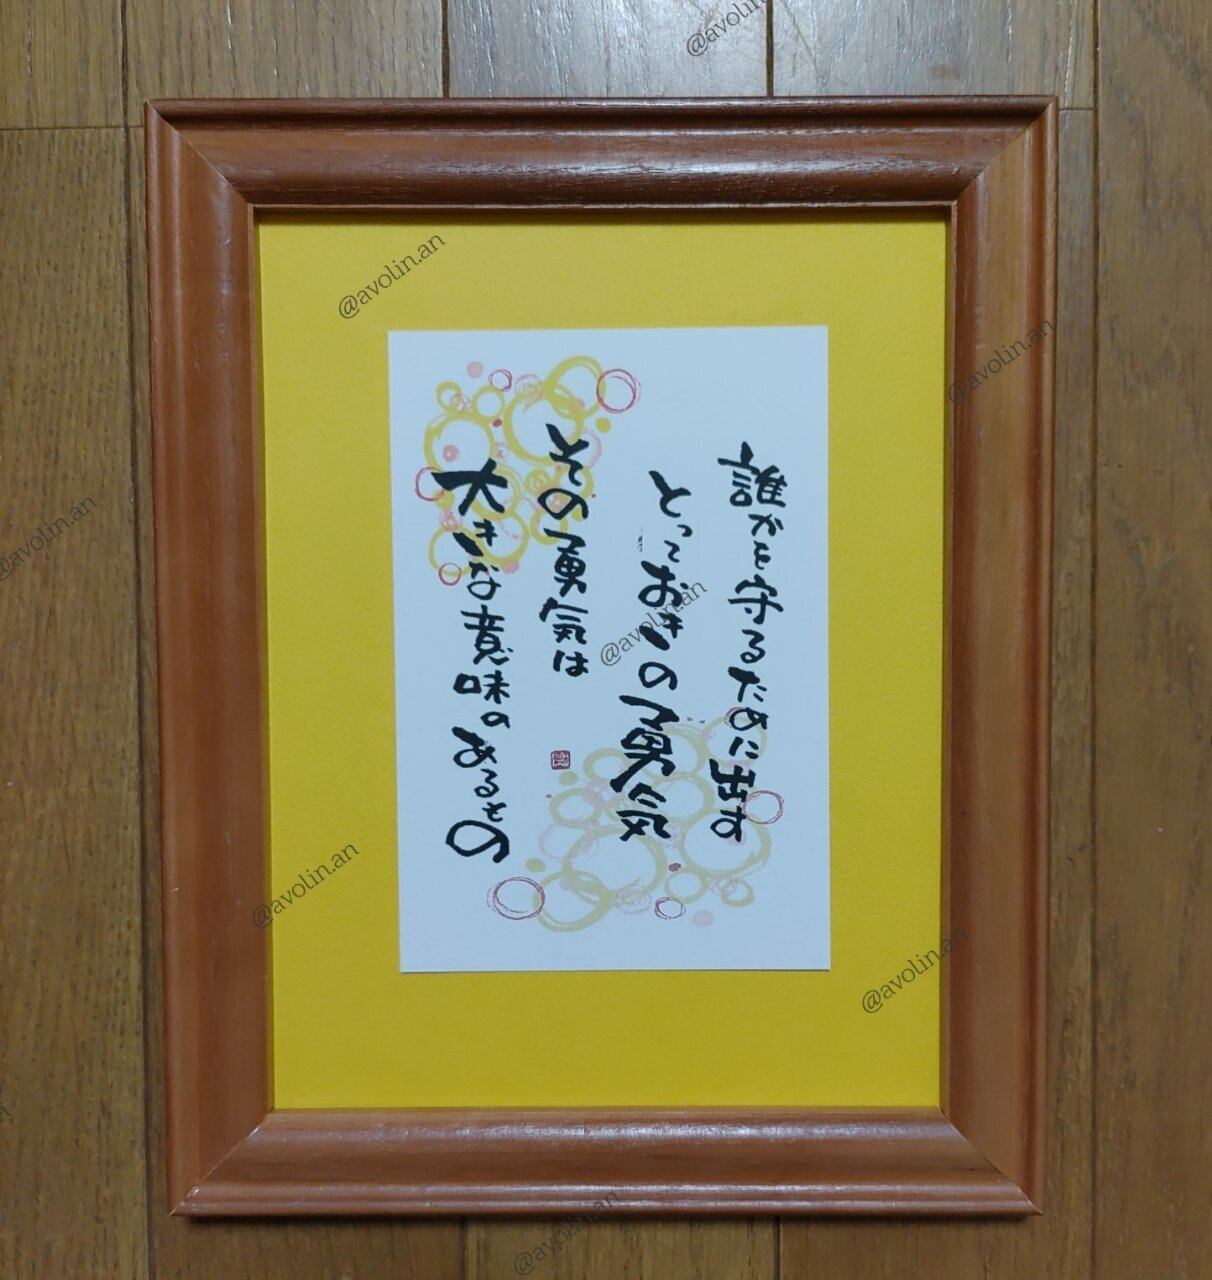 誰かを守るために出す
とっておきの勇気
その勇気は
大きな意味のあるもの
@avolin.an
@avolin.an
@avolin.an
@avolin.an
@avolin.an
@avolin.an
@avolin.an
@avolin.an